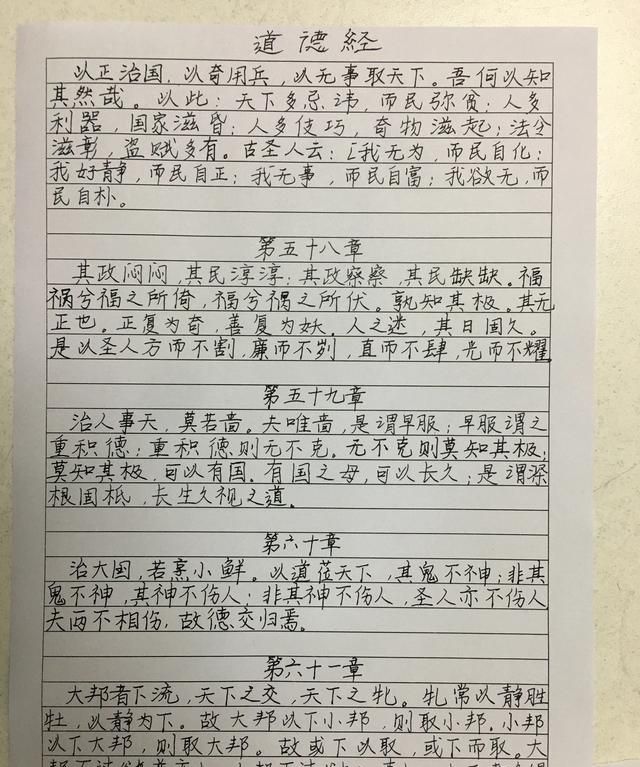 道德经
以正治国，以奇用兵，以无事取天下。吾何以知
其然哉。以此：天下多忌讳，而民弥贫；人多
利器，国家滋昏；人多伎巧，奇物滋起；法令
滋彰，盗贼多有。古圣人云：［我无为，而民自化；
我好静，而民自正；我无事，而民自富；我欲无，而
民自朴。
第五十八章
其政闷闷，其民淳淳；其政察察，其民缺缺。福
祸兮福之所倚，福兮祸之所伏。孰知其极。其无
正也。正复为奇，善复为妖。人之迷，其日固久。
是以圣人方而不割，廉而不刿，直而不肆，光而不耀
第五十九章
治人事天，莫若啬。夫唯啬，是谓早服；早服谓之
重积德；重积德则无不克。无不克则莫知其极；
莫知其极，可以有国。有国之母，可以长久；是谓深
根固柢，长生久视之道。
第六十章
治大国，若烹小鲜。以道莅天下，其鬼不神；非其
鬼不神，其神不伤人；非其神不伤人，圣人亦不伤人
夫两不相伤，故德交归焉。
第六十一章
大邦者下流，天下之交，天下之牝。牝常以静胜
牡，以静为下。故大邦以下小邦，则取小邦，小邦
以下大邦，则取大邦。故或下以取，或下而取。大